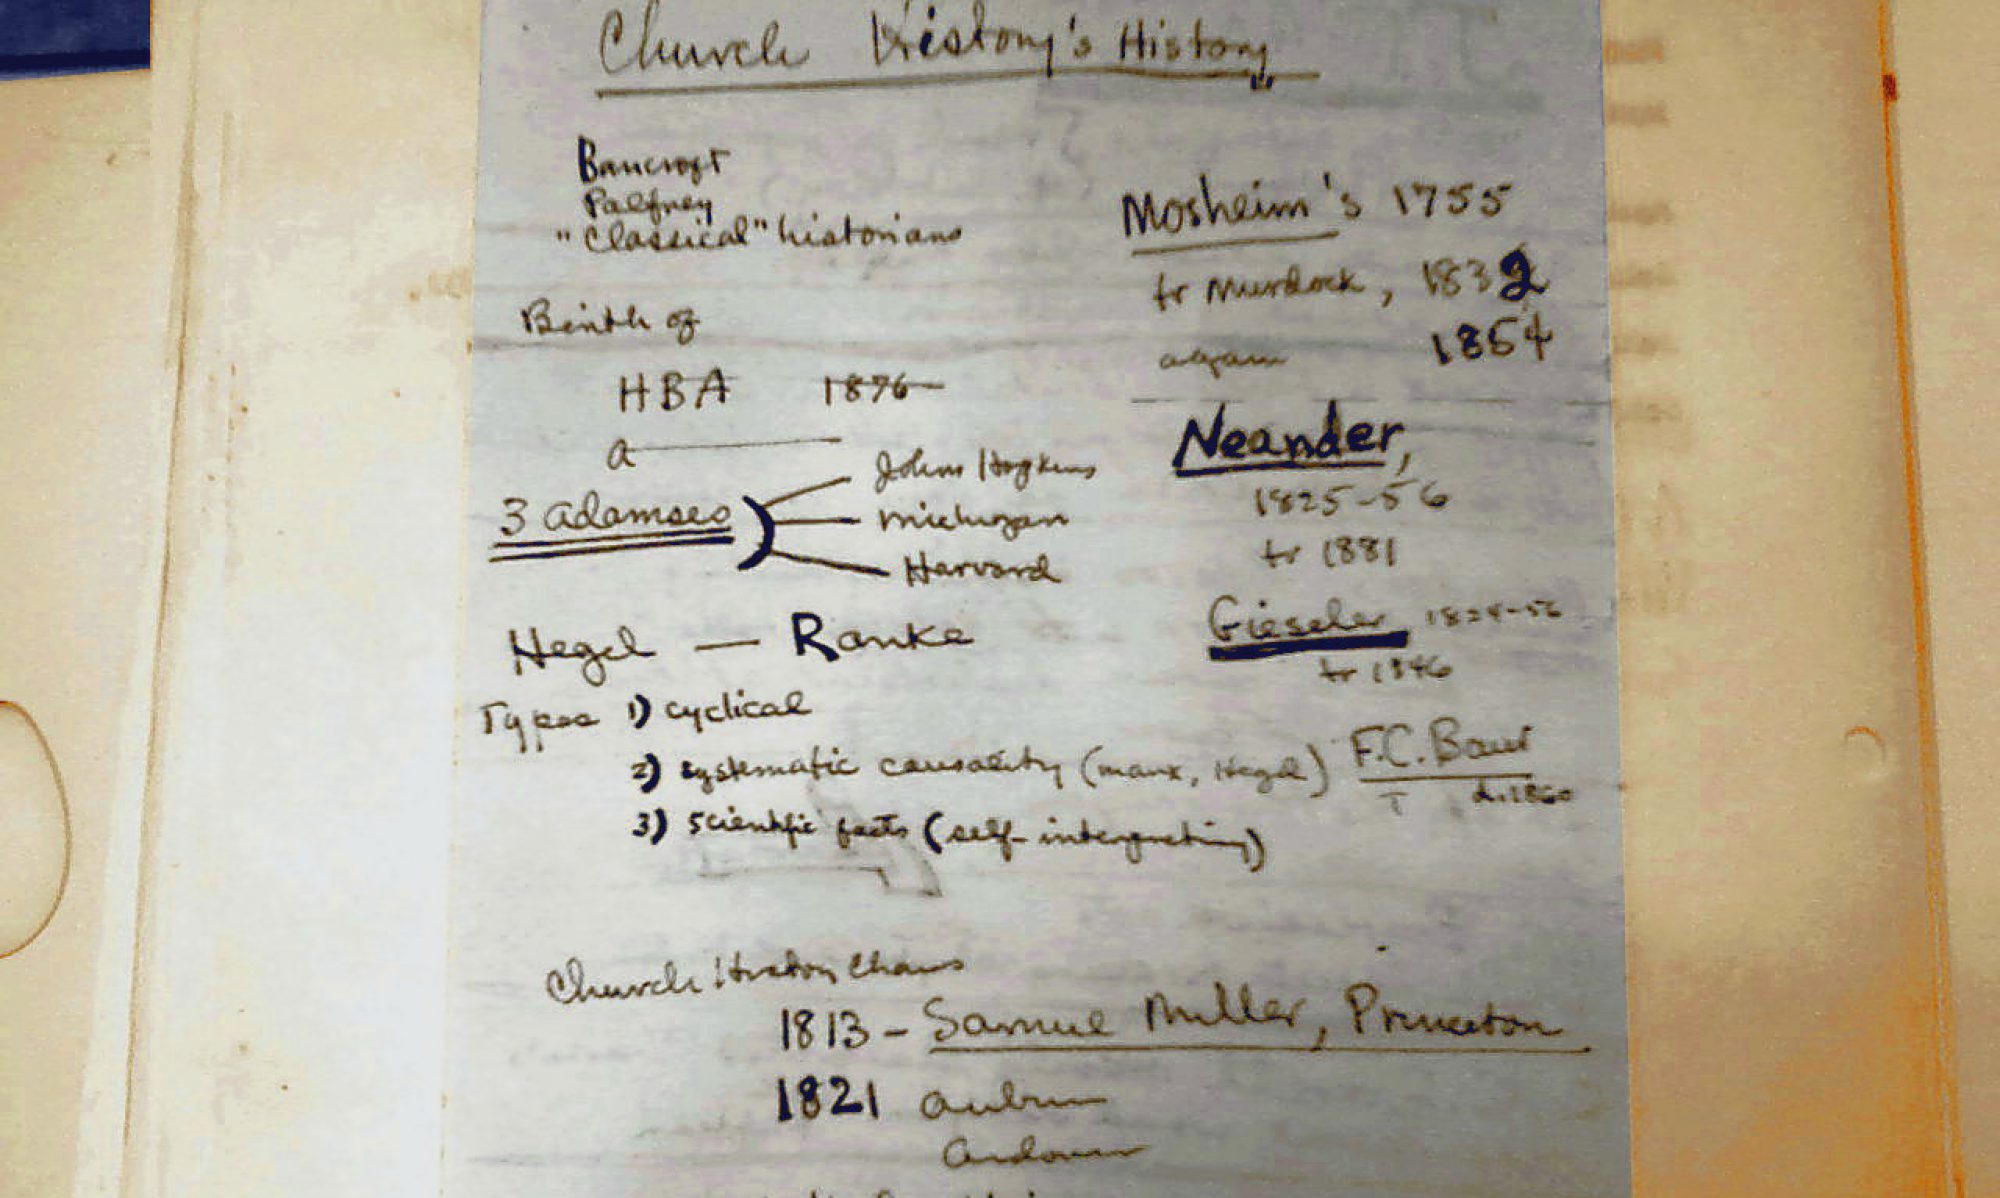 Church History's History
Bancroft
Palfrey
"Classical" historians
Birth of
HBA 1876
a
3 Adamses
Johns Hopkins
Michigan
Harvard
Hegel — Ranke
Types 1) cyclical
2) systematic causality (Marx, Hegel)
3) scientific facts (self-interpreting)
Mosheim's 1755
tr Murdock, 1832
again 1854
Neander,
1825-56
tr 1881
Gieseler 1824-56
tr 1846
F.C. Baur
d. 1860
Church History Chairs
1813 - Samuel Miller, Princeton
1821 Auburn
Andover